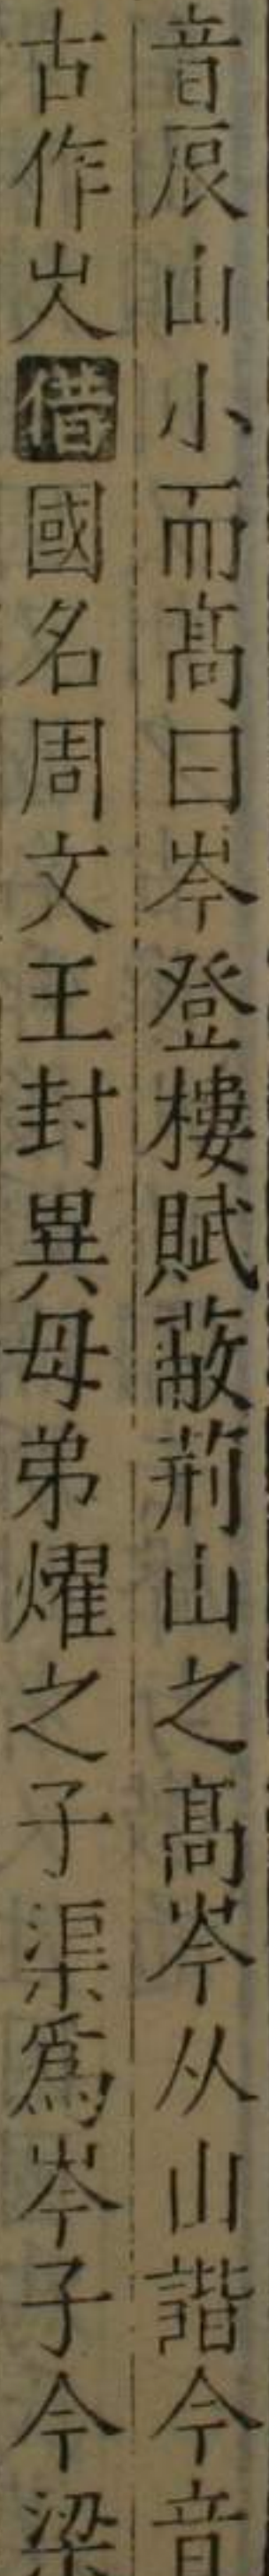 音㞋山小而髙曰岑登樓賦蔽荊山之髙岑从山諧今音
古作㞤借國名周文王封異母弟燿之子渠爲岑子今梁